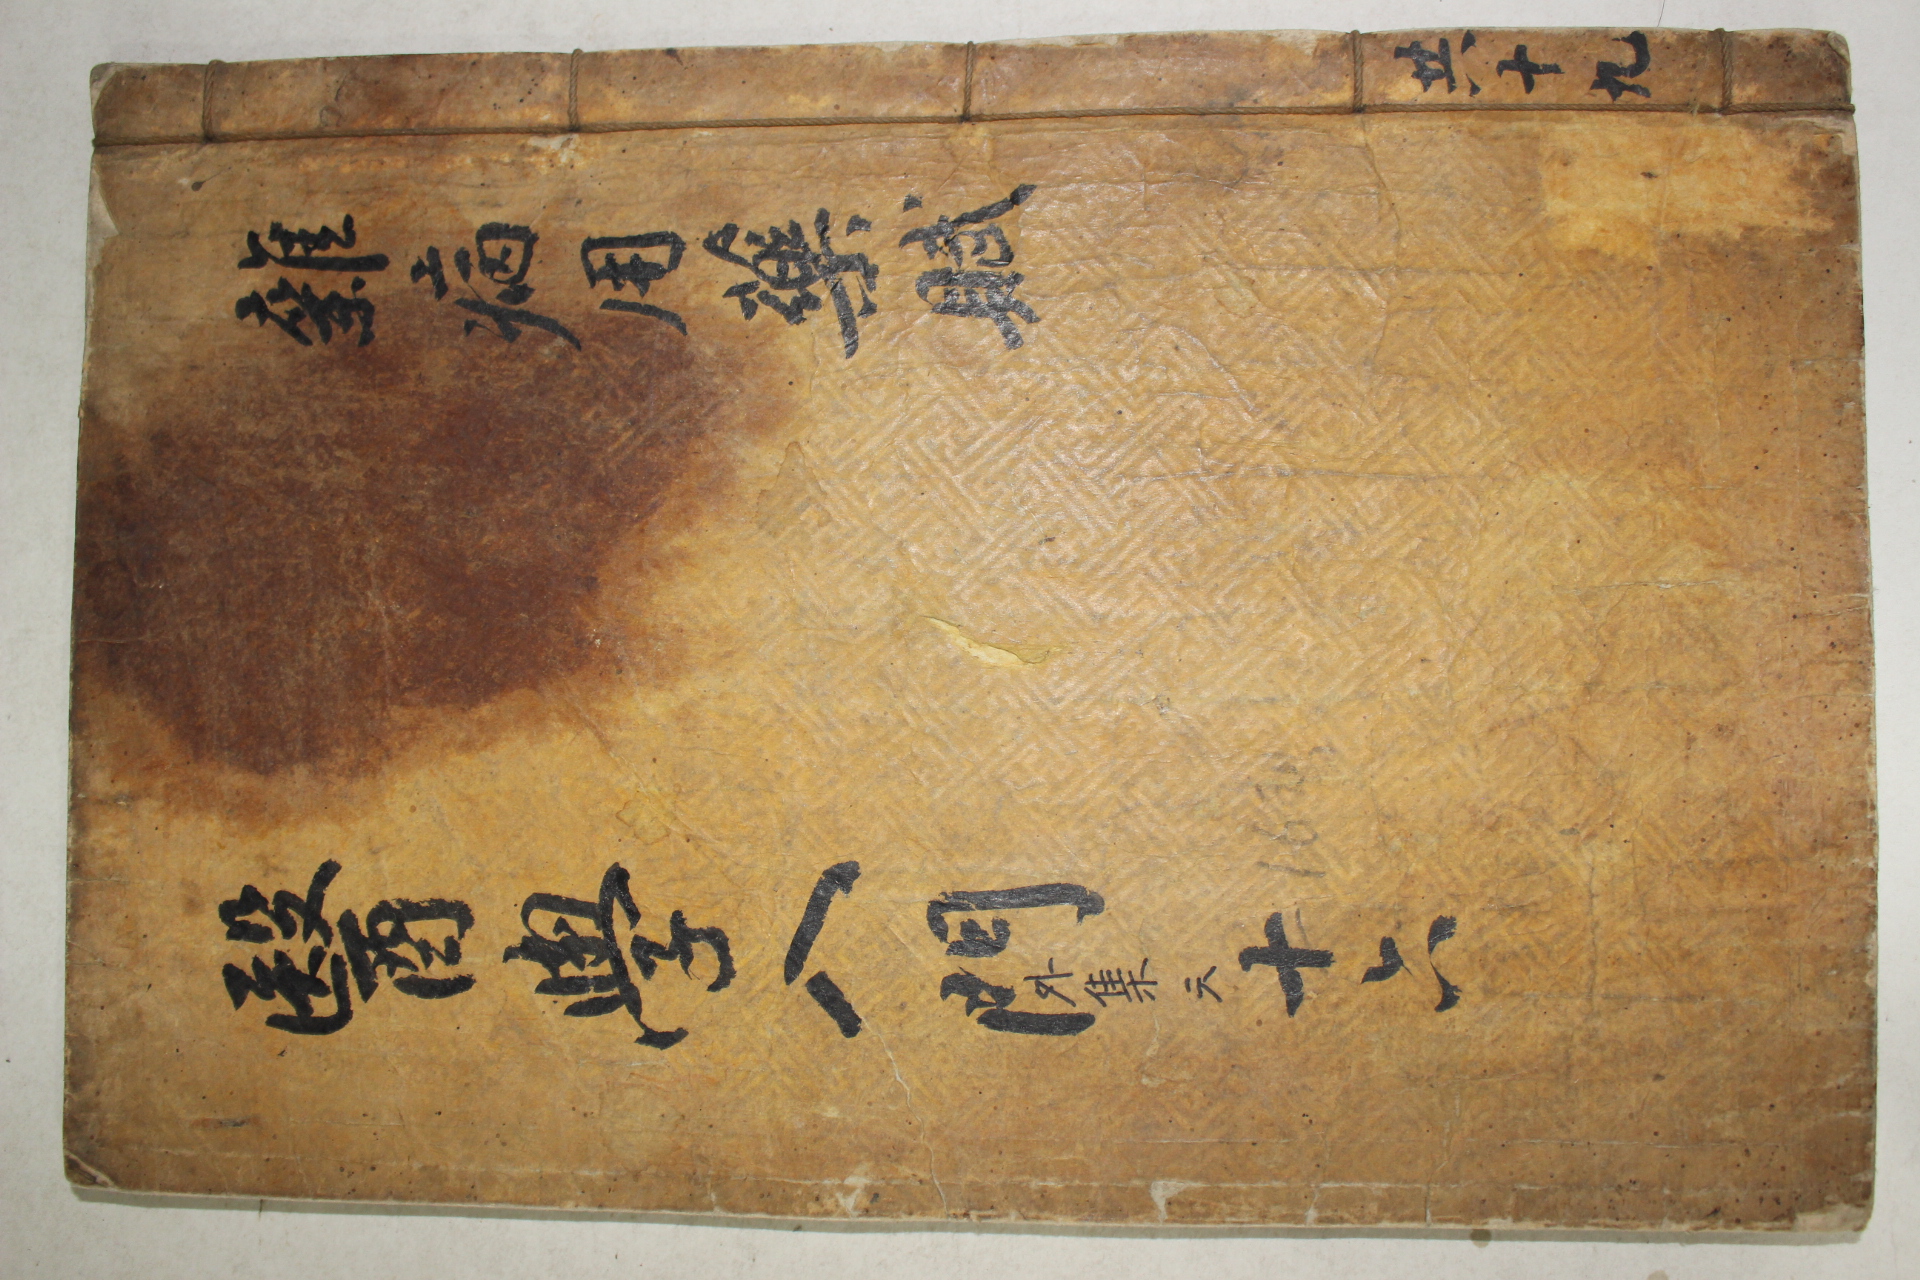 共十九
雜病用藥賦
醫學入門 外集六 十六